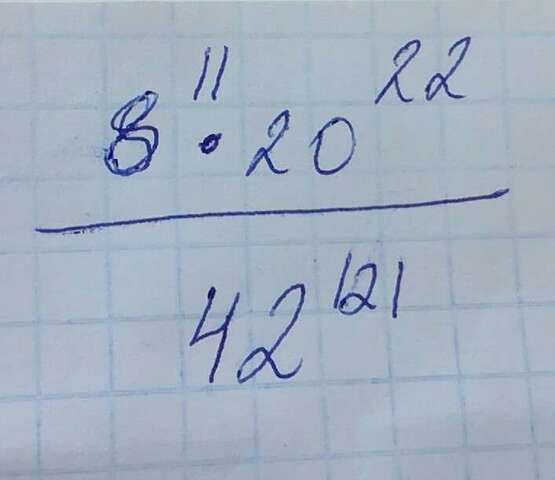 8¹¹ · 20²²
42¹²¹